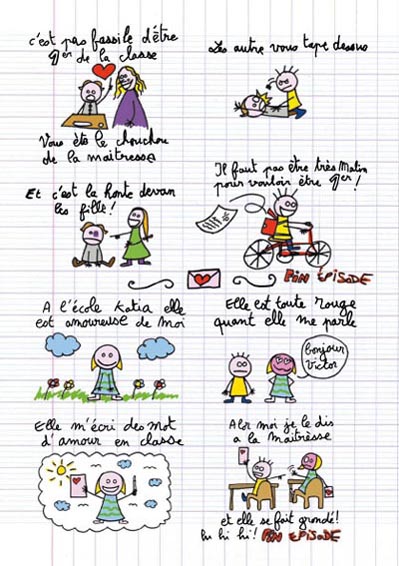 c'est pas fassile d'être
1er de la classe
Les autre vous tape dessus
Vous éte le chouchou
de la maitresse
Et c'est la honte devan
les fille!
Il faut pas être très Matin
pour vouloir être 1er!
FIN ÉPISODE
A l'école Katia elle
est amoureuse de moi
Elle est toute rouge
quant elle me parle
bonjour
Victor
Elle m'écri des mot
d'amour en classe
Alor moi je le dis
a la maitrèsse
et elle se fait grondé!
hi hi hi! FIN EPISODE